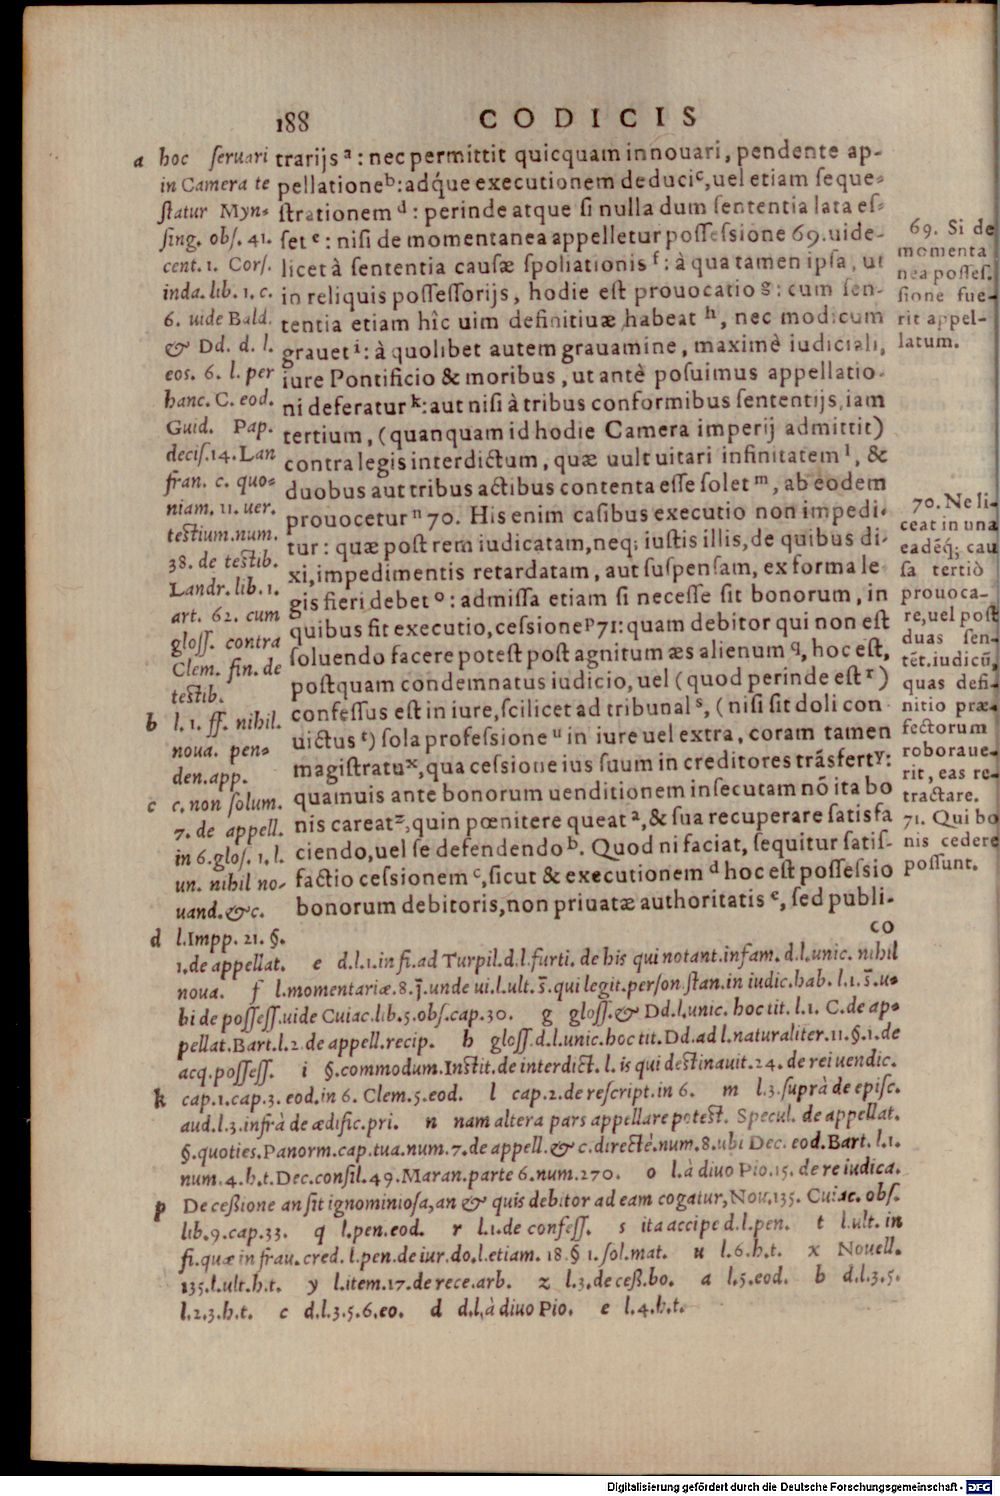 188
CODICIS
trarijs a : nec permittit quicquam innouari, pendente ap-
pellatione b: adq́ue executionem deduci c, uel etiam seque-
strationem d : perinde atque si nulla dum sententia lata es-
set e : nisi de momentanea appelletur possessione 69. uide-
licet à sententia causæ spoliationis f : à qua tamen ipsa, ut
in reliquis possessorijs, hodie est prouocatio g : cum sen-
tentia etiam hîc uim definitiuæ habeat h, nec modicum
grauet i: à quolibet autem grauamine, maximè iudiciali,
iure Pontificio & moribus, ut antè posuimus appellatio-
ni deferatur k: aut nisi à tribus conformibus sententijs, iam
tertium, (quanquam id hodie Camera imperij admittit)
contra legis interdictum, quæ uult uitari infinitatem l, &
duobus aut tribus actibus contenta esse solet m, ab eodem
prouocetur n 70. His enim casibus executio non impedi-
tur: quæ post rem iudicatam, neq; iustis illis, de quibus di-
xi, impedimentis retardatam, aut suspensam, ex forma le
gis fieri debet o : admissa etiam si necesse sit bonorum, in
quibus fit executio, cessione p 71: quam debitor qui non est
soluendo facere potest post agnitum æs alienum q, hoc est,
postquam condemnatus iudicio, uel (quod perinde est r )
confessus est in iure, scilicet ad tribunal s, (nisi sit doli con
uictus t) sola professione u in iure uel extra, coram tamen
magistratu x, qua cessione ius suum in creditores trãsfert y:
quamuis ante bonorum uenditionem insecutam nõ ita bo
nis careat z, quin pœnitere queat a, & sua recuperare satisfa
ciendo, uel se defendendo b. Quod ni faciat, sequitur satis-
factio cessionem c, sicut & executionem d hoc est possessio
bonorum debitoris, non priuatæ authoritatis e, sed publi-
co
a hoc seruari
in Camera te
statur Myn-
sing. obs. 41.
cent. 1. Cors.
inda. lib. 1. c.
6. uide Bald.
& Dd. d. l.
eos. 6. l. per
hanc. C. eod.
Guid. Pap.
decis. 14. Lan
fran. c. quo-
niam. 11. uer.
testium. num.
38. de testib.
Landr. lib. 1.
art. 62. cum
gloss. contra
Clem. fin. de
testib.
b l. 1. ff. nihil.
noua. pen-
den. app.
c c. non solum.
7. de appell.
in 6. glos. 1. l.
un. nihil no-
uand. &c.
d l. Impp. 21. §.
1. de appellat. e d. l. 1. in fi. ad Turpil. d. l. furti. de his qui notant. infam. d. l. unic. nihil
noua. f l. momentariæ. 8. j̃. unde ui. l. ult. s̃. qui legit. person. stan. in iudic. hab. l. 1. s̃. u-
bi de possess. uide Cuiac. lib. 5. obs. cap. 30. g gloss. & Dd. l. unic. hoc tit. l. 1. C. de ap-
pellat. Bart. l. 2. de appell. recip. h gloss. d. l. unic. hoc tit. Dd. ad l. naturaliter. 11. §. 1. de
acq. possess. i §. commodum. Instit. de interdict. l. is qui destinauit. 24. de rei uendic.
k cap. 1. cap. 3. eod. in 6. Clem. 5. eod. l cap. 2. de rescript. in 6. m l. 3. suprà de episc.
aud. l. 3. infrà de ædific. pri. n nam altera pars appellare potest. Specul. de appellat.
§. quoties. Panorm. cap. tua. num. 7. de appell. & c. directè. num. 8. ubi Dec. eod. Bart. l. 1.
num. 4. h. t. Dec. consil. 49. Maran. parte 6. num. 270. o l. à diuo Pio. 15. de re iudica.
p De cessione an sit ignominiosa, an & quis debitor ad eam cogatur, Nou. 135. Cuiac. obs.
lib. 9. cap. 33. q l. pen. eod. r l. 1. de confess. s ita accipe d. l. pen. t l. ult. in
fi. quæ in frau. cred. l. pen. de iur. do. l. etiam. 18. § 1. sol. mat. u l. 6. h. t. x Nouell.
135. l. ult. h. t. y l. item. 17. de rece. arb. z l. 3. de cess. bo. a l. 5. eod. b d. l. 3. 5.
l. 2. 3. h. t. c d. l. 3. 5. 6. eo. d d. l. à diuo Pio. e l. 4. h. t.
69. Si de
momenta
nea posses.
sione fue-
rit appel-
latum.
70. Ne li-
ceat in una
eadẽq́; cau
sa tertiò
prouoca-
re, uel post
duas sen-
tẽt. iudicũ,
quas defi-
nitio præ-
fectorum
roboraue-
rit, eas re-
tractare.
71. Qui bo
nis cedere
possunt.
Digitalisierung gefördert durch die Deutsche Forschungsgemeinschaft - DFG